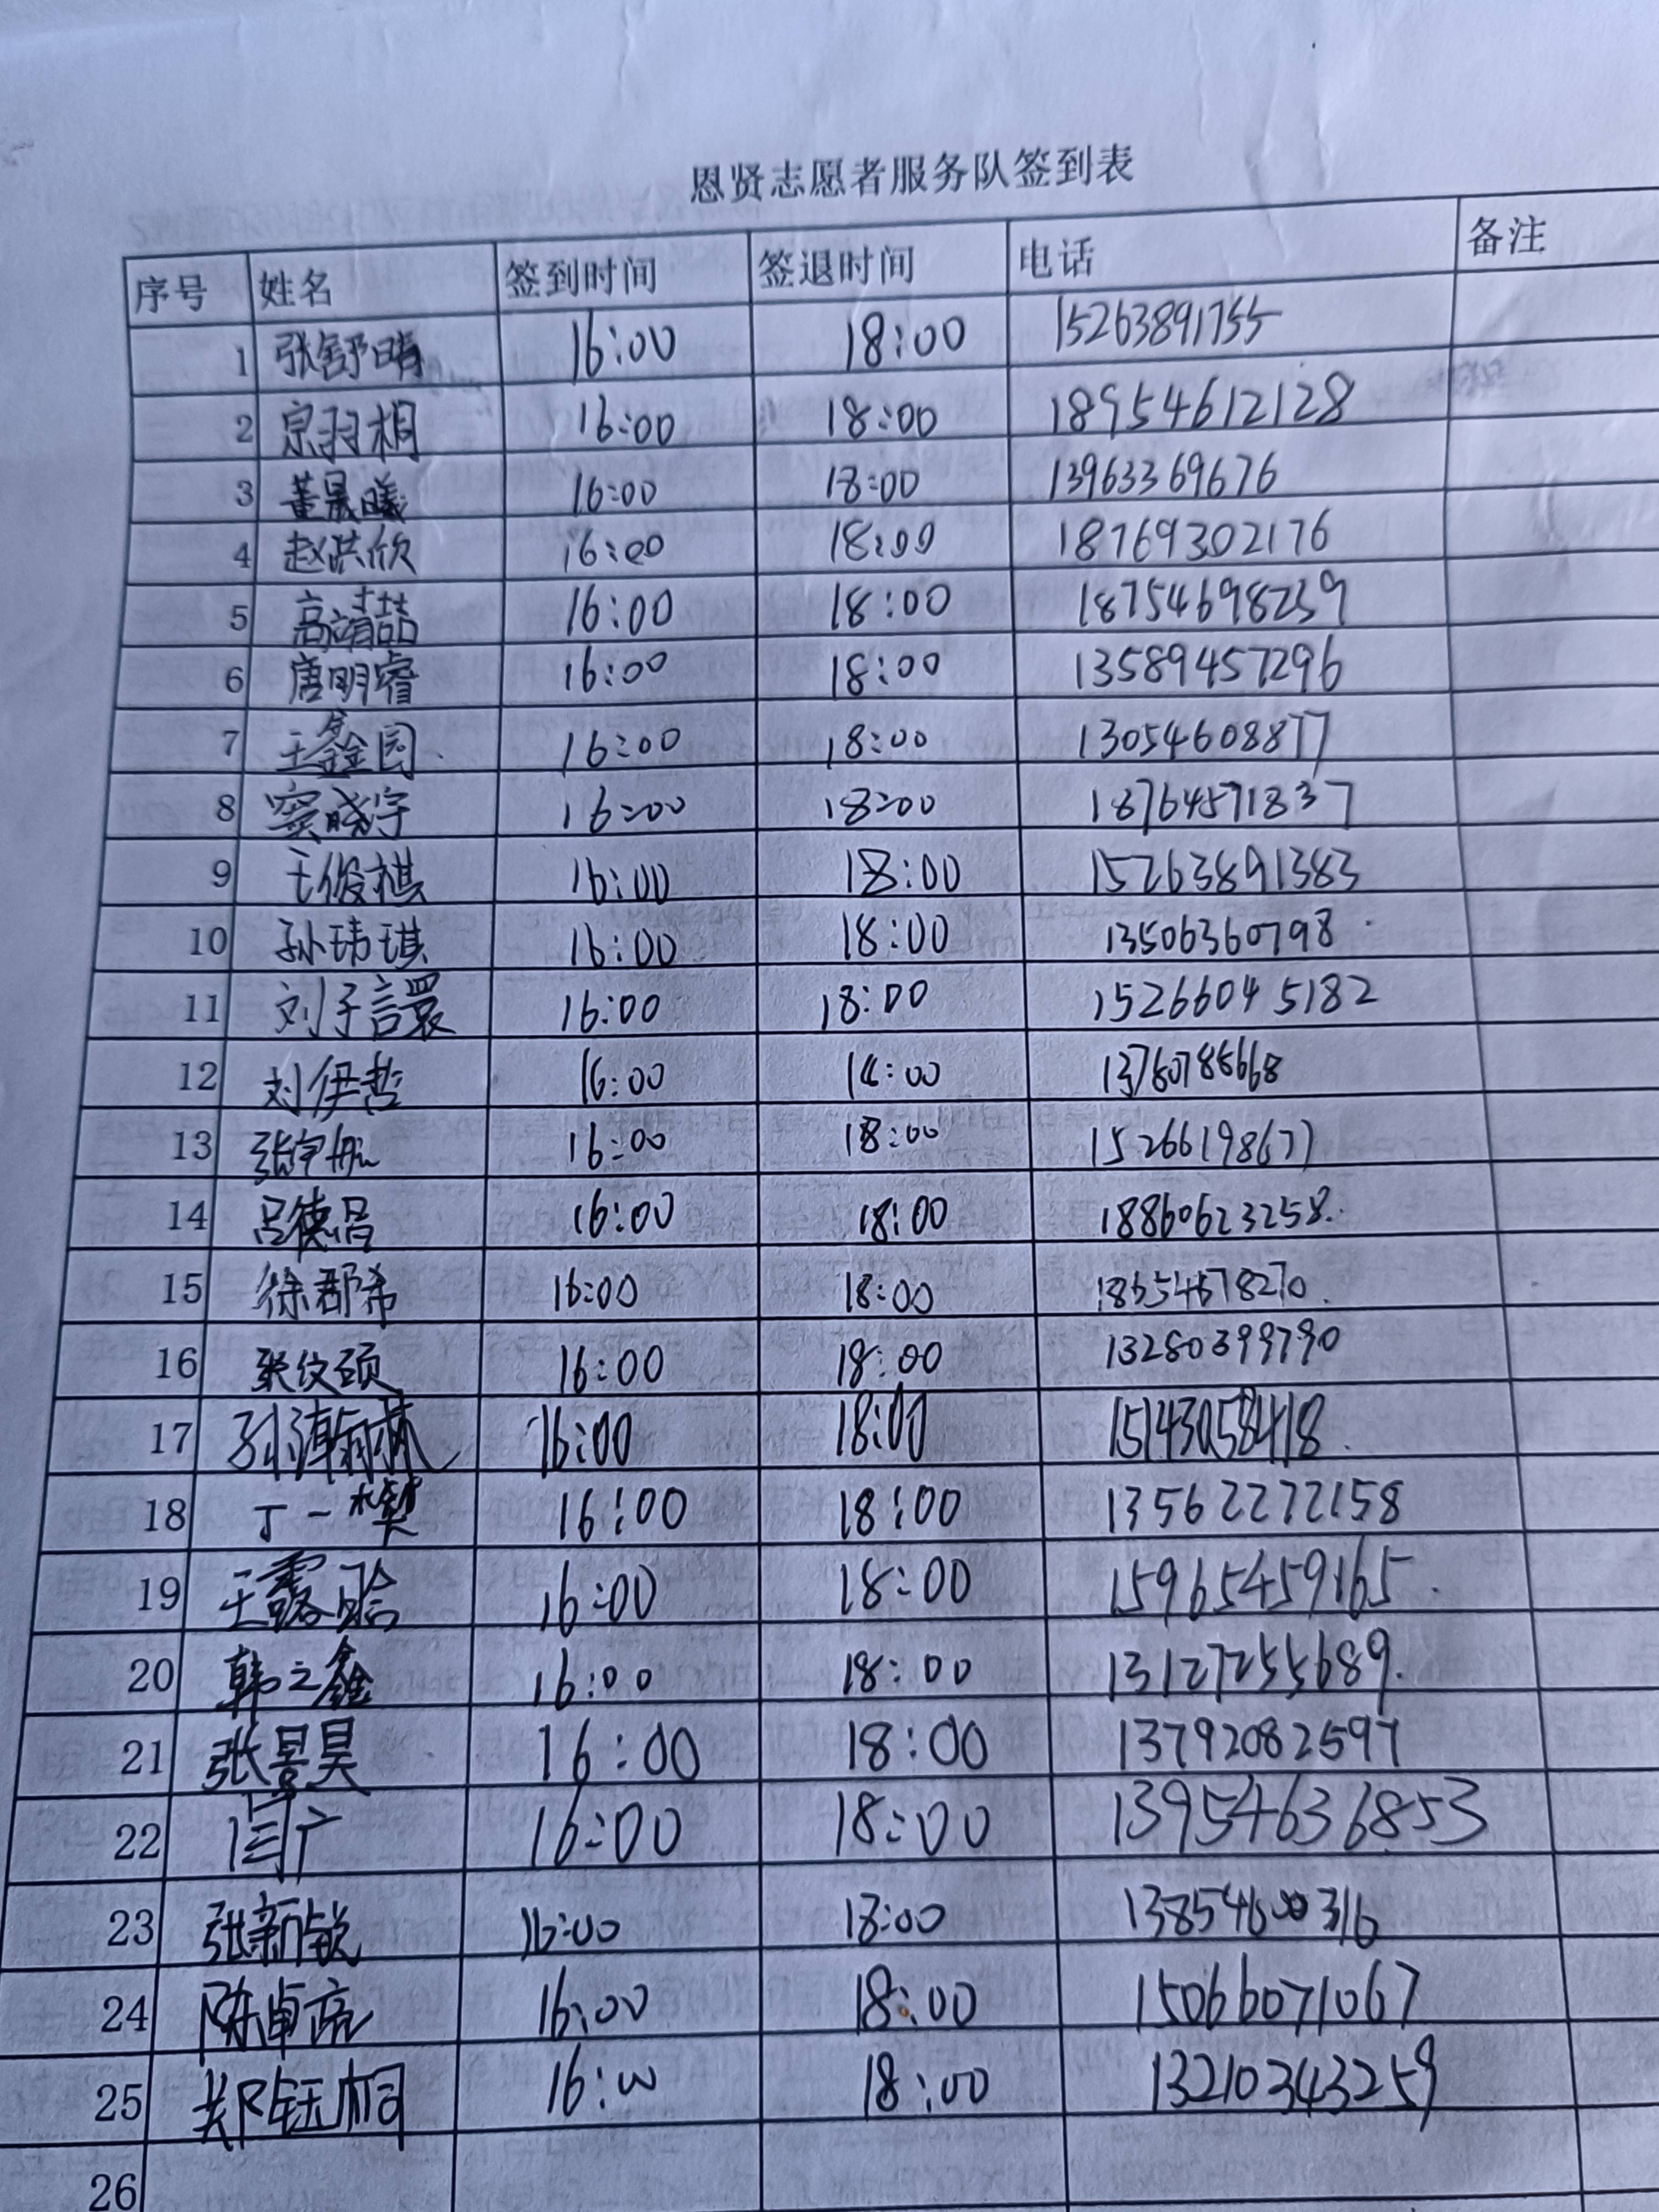 恩贤志愿者服务队签到表
序号 姓名 签到时间 签退时间 电话 备注
1 张舒晴 16:00 18:00 15263891755
2 宗羽桐 16:00 18:00 18954612128
3 董晟曦 16:00 18:00 13963369676
4 赵洪欣 16:00 18:00 18769302176
5 高靖喆 16:00 18:00 18754698239
6 唐明睿 16:00 18:00 13589457296
7 王鑫园 16:00 18:00 13054608877
8 窦晓宇 16:00 18:00 18764571837
9 王俊棋 16:00 18:00 15263891383
10 孙玮琪 16:00 18:00 13506360798
11 刘子譞 16:00 18:00 15266045182
12 刘伊哲 16:00
13 张宇航 16:00 18:00 15266198677
14 吕德昌 16:00 18:00 18860623258
15 徐郡希 16:00 18:00
16 张纹硕 16:00 18:00 13280399790
17 16:00 18:00
18 丁一 16:00 18:00 13562272158
19 王露晗 16:00 18:00 15965459165
20 韩之鑫 16:00 18:00 13127255689
21 张景昊 16:00 18:00 13792082597
22 16:00 18:00 13954636853
23 张新锐 16:00 18:00 13854600316
24 陈卓亮 16:00 18:00 15066071067
25 郑钰桐 16:00 18:00 13210343259
26